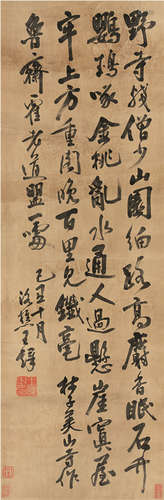 野寺殘僧少山園細路高麝香眠石竹
鸚鵡啄金桃亂水通人過懸崖置屋
牢上方重閣晚百里見纖毫 杜子美山寺作
魯齋霍老道盟一
己丑十月
王鐸